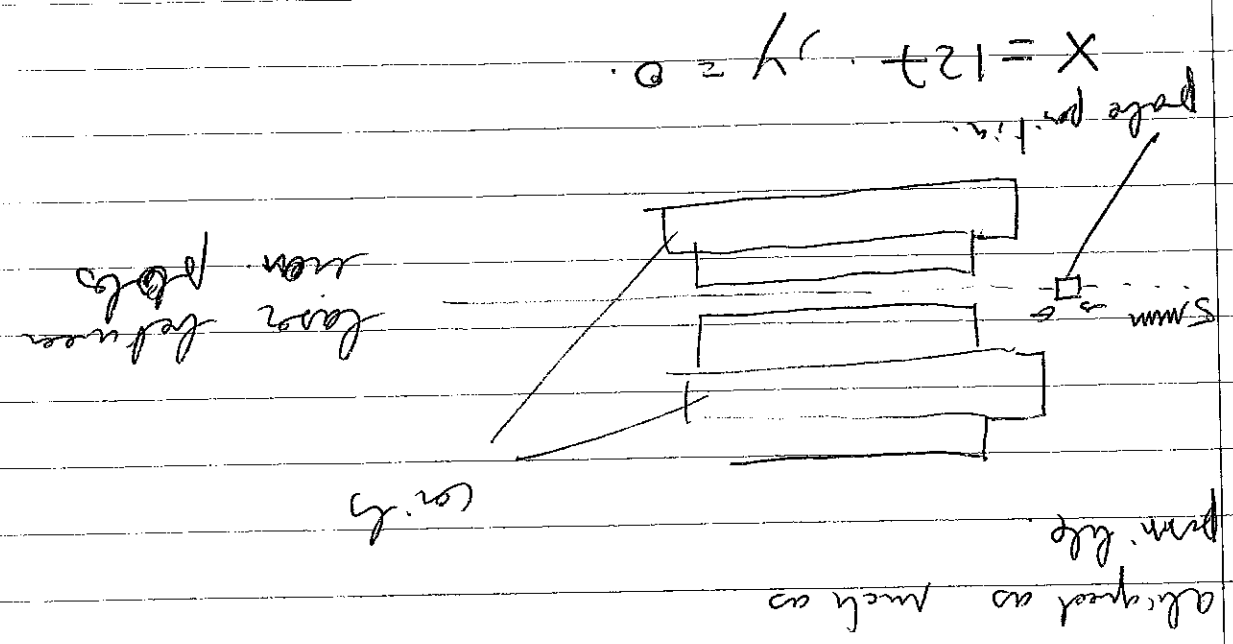 aligned as much as
possible
coils
5mm
laser between
iron poles
probe position.
X = 127 , Y = 0.